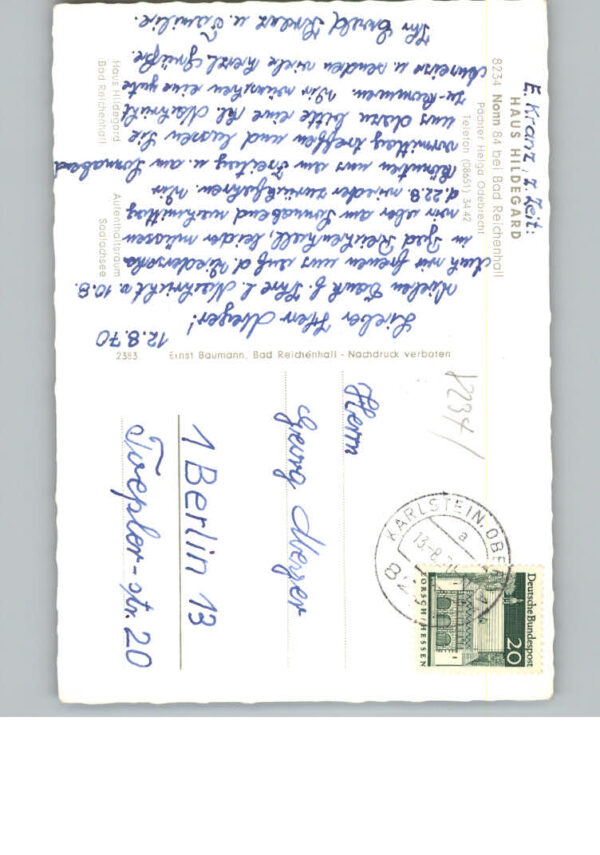 E. Kranz, z. Zeit:
HAUS HILDEGARD
8234 Nonn 84 bei Bad Reichenhall
Pächter Helga Odebrecht
Telefon (08651) 34 42
Haus Hildegard
Bad Reichenhall
Aufenthaltsraum
Saalachsee
12.8.70
Lieber Herr Meyer!
Vielen Dank f. Ihre l. Nachricht v. 10.8.
Auch wir freuen uns auf d. Wiedersehn
in Bad Reichenhall, leider müssen
wir aber am Sonnabend nachmittag
d. 22.8. wieder zurückfahren. Wir
könnten uns am Freitag u. am Sonnabend
vormittag treffen und lassen Sie
uns dazu bitte eine kl. Nachricht
zukommen. Wir wünschen eine gute
Anreise u. senden viele herzl. Grüße.
Ihr Ewald Kranz u. Familie.
2383 Ernst Baumann, Bad Reichenhall - Nachdruck verboten
8234
Herrn
Georg Meyer
1 Berlin 13
Toepler-str. 20
KARLSTEIN, OBER
13.-8.70
a
Deutsche Bundespost
20
LORSCH/HESSEN